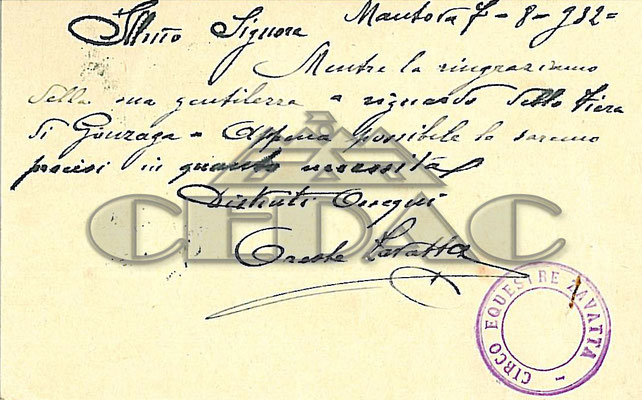 Illmo Signore Mantova 7-8-932=
Mentre la ringraziamo
della sua gentilezza a riguardo della Fiera
di Gonzaga = Appena possibile le saremo
precisi in quanto necessita
Distinti Ossequi
Oreste Zavatta
CEDAC
CIRCO EQUESTRE ZAVATTA -